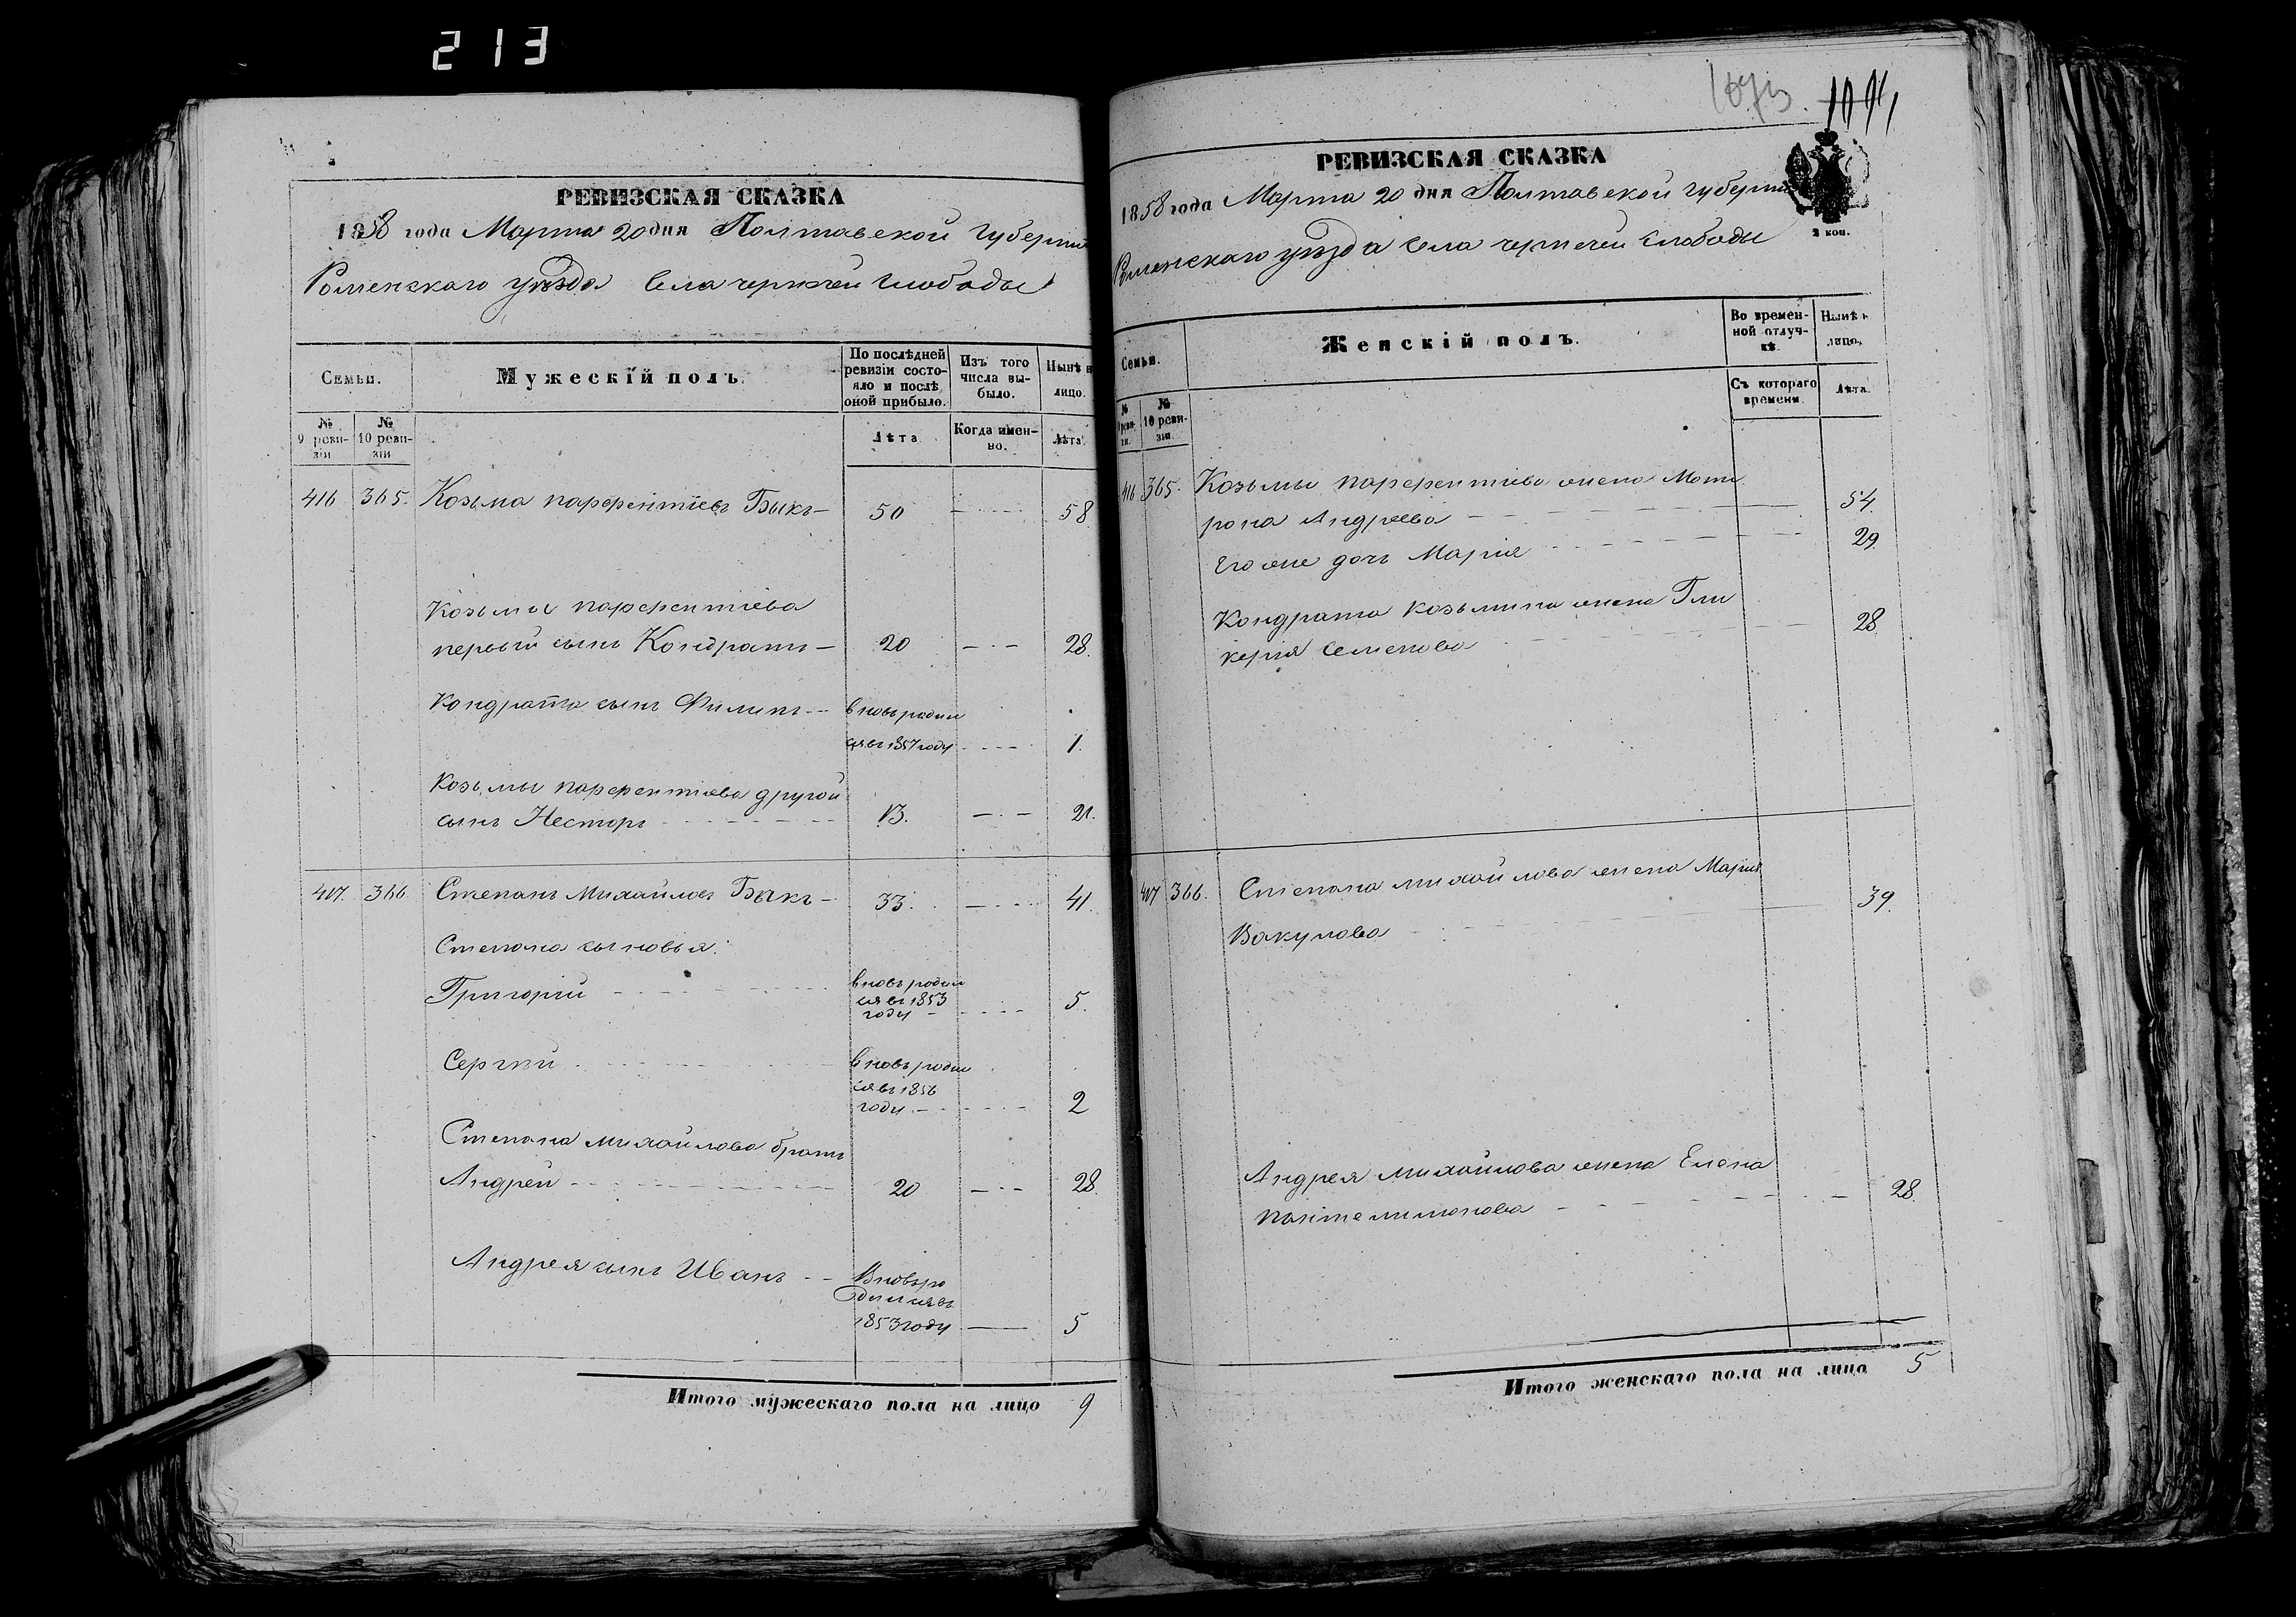 213
РЕВИЗСКАЯ СКАЗКА
1858 года Марта 20 дня Полтавской Губерніи
Роменскаго уѣзда Села чернечей слободы
Семьи.
Мужескій полъ.
По послѣдней ревизіи состояло и послѣ оной прибыло.
Изъ того числа выбыло.
Нынѣ на лицо.
№ 9 ревизіи
№ 10 ревизіи
Лѣта
Когда именно.
Лѣта.
416 365. Козьма парфентіевъ Быкъ 50 58
Козьмы парфентіева
первый сынъ Кондратъ 20 28.
Кондрата сынъ Филипъ вновь родил
ся въ 1857 году 1.
Козьмы парфентіева другой
сынъ Несторъ 13. 21.
417. 366. Степанъ Михайловъ Быкъ 33. 41.
Степана сыновья:
Григорій вновь родил
ся въ 1853
году 5.
Сергѣй вновь родил
ся въ 1856
году 2
Степана михайлова братъ
Андрей 20 28.
Андрея сынъ Иванъ Вновь ро
дился въ
1853 году 5
Итого мужескаго пола на лицо 9
1073.
РЕВИЗСКАЯ СКАЗКА
1858 года Марта 20 дня Полтавской губерніи
Роменскаго уѣзда Села чернечей Слободы
2 коп.
Семьи.
Женскій полъ.
Во временной отлучкѣ.
Нынѣ на лицо.
№ 9 ревизіи.
№ 10 ревизіи
Съ котораго времени.
Лѣта.
416 365. Козьмы парфентіева жена Мот
рона Андреева 54.
Его же дочь Марія 29.
Кондрата козьмина жена Гли
керія Семенова 28.
417 366. Степана михайлова жена Марія
Вакулова 39.
Андрея михайлова жена Елена
пантелимонова 28.
Итого женскаго пола на лицо 5